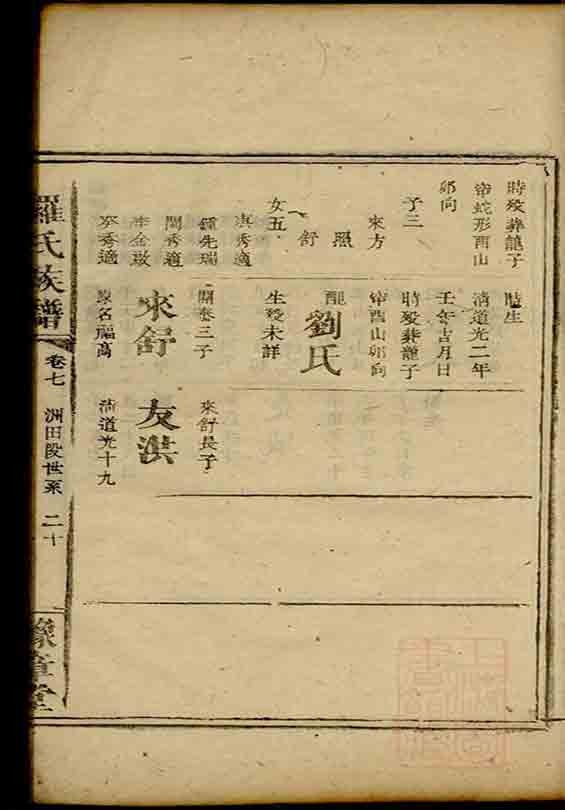 時殁葬龍子
帝蛇形酉山
卯向
子三
來方
照
舒
女五
淇秀適
鍾先瑞
閏秀適
李金啟
麥秀適
時生
清道光二年
壬午吉月日
時殁葬龍子
帝酉山卯向
配
劉氏
生殁未詳
開泰三子
來舒
原名福高
來舒長子
友洪
清道光十九
羅氏族譜
卷七
洲田段世系
二十
豫章堂